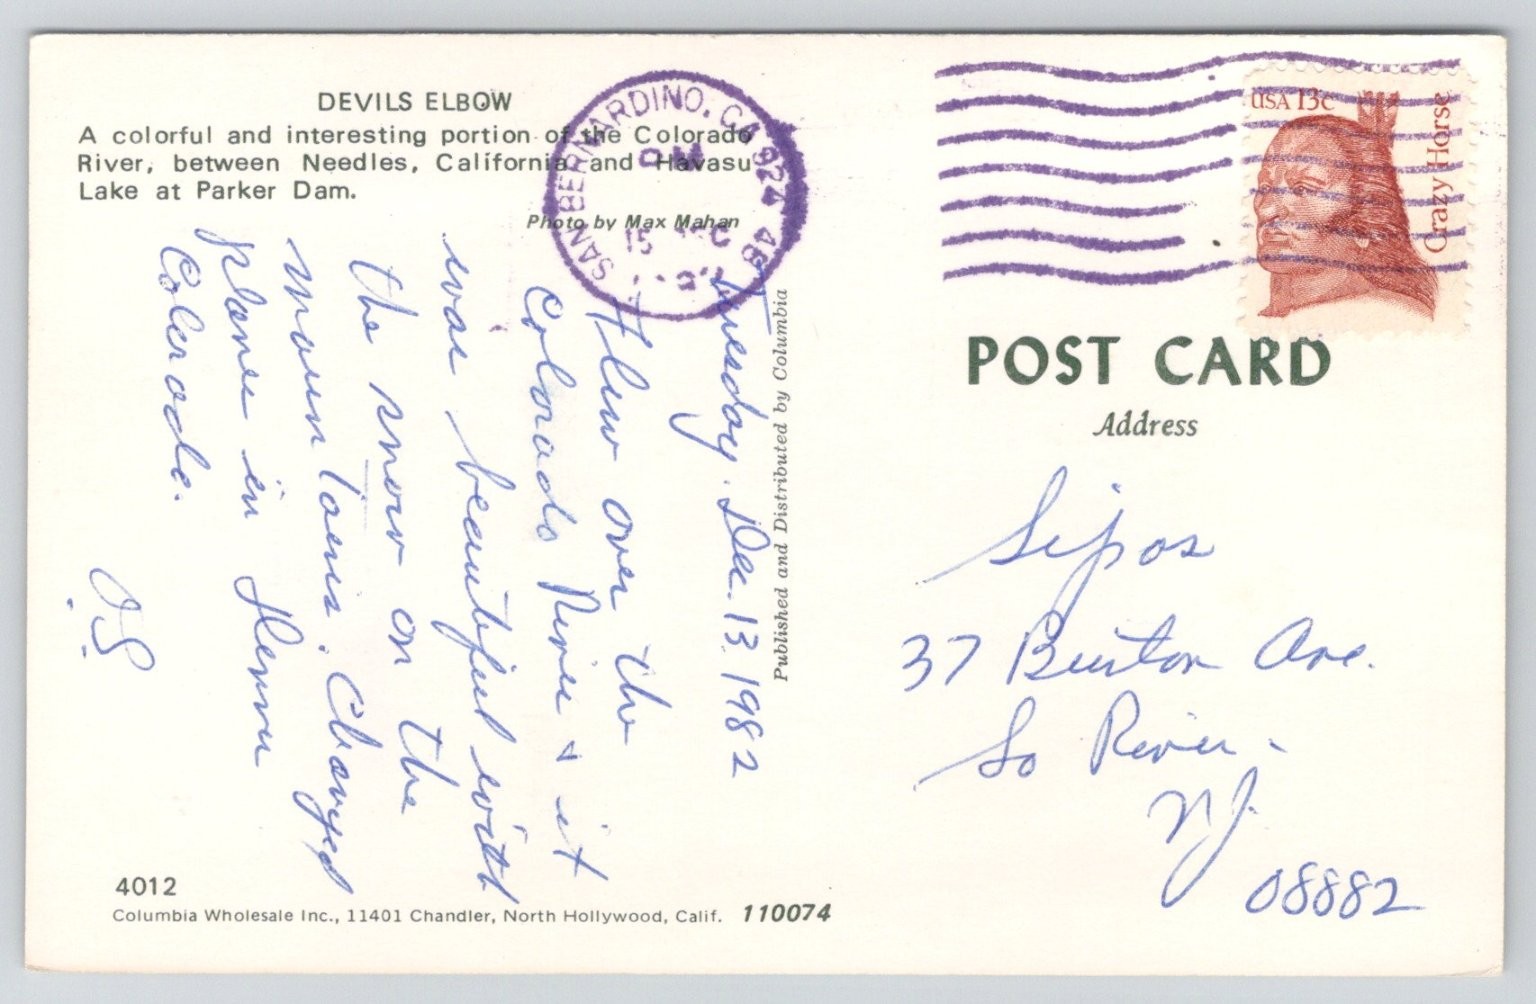 DEVILS ELBOW
A colorful and interesting portion of the Colorado
River, between Needles, California and Havasu
Lake at Parker Dam.
Photo by Max Mahan
SAN BERNARDINO, CA 924
PM
15
Tuesday. Dec. 13 1982
Flew over the
Colorado River & it
was beautiful with
the snow on the
mountains. Changed
planes in Denver
Colorado.
J.S.
4012
Columbia Wholesale Inc., 11401 Chandler, North Hollywood, Calif. 110074
Published and Distributed by Columbia
USA 13c
Crazy Horse
POST CARD
Address
Sipos
37 Burton Ave.
So River -
NJ.
08882